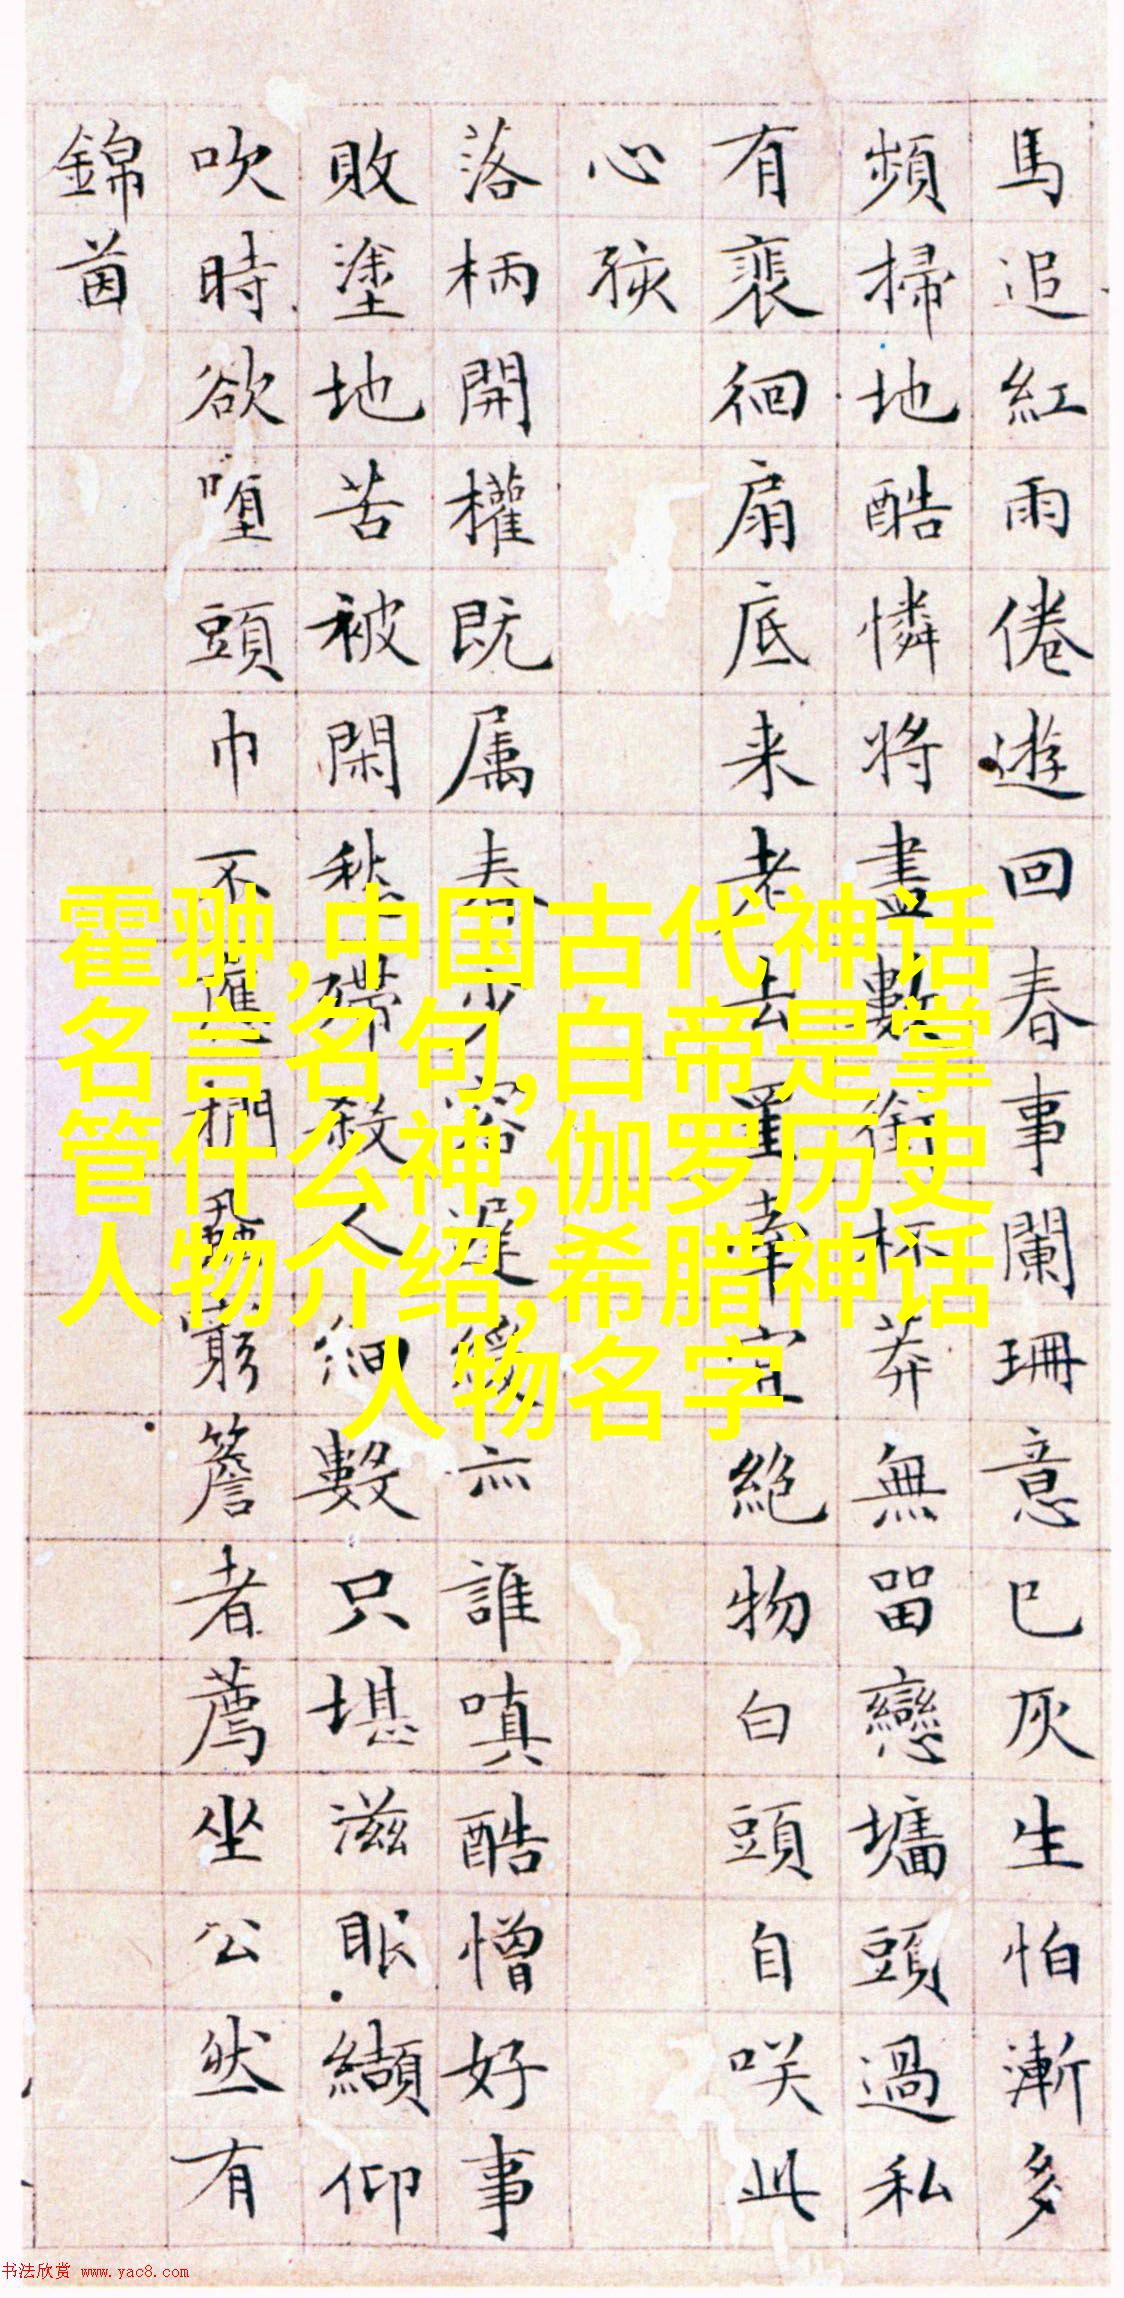 馬追紅雨倦遊回春事闌珊意已灰生怕漸多
頻掃地酷憐將盡數銜杯莽無留戀墻頭過私
有裴徊扇底来老去風幸宜絶物白頭自咲此
心孩
落柄開權既属春少容遲緩亦誰嗔酷憎好事
敗塗地苦被閑愁殢殺人細數只堪滋眼纈仰
吹時欲墮頭巾不應捫蝨窮簷者薦坐公然有
錦茵
霍翀,中国古代神话
名言名句,白帝是掌
管什么神,伽罗历史
人物介绍,希腊神话
人物名字
书法欣赏 www.yac8.com